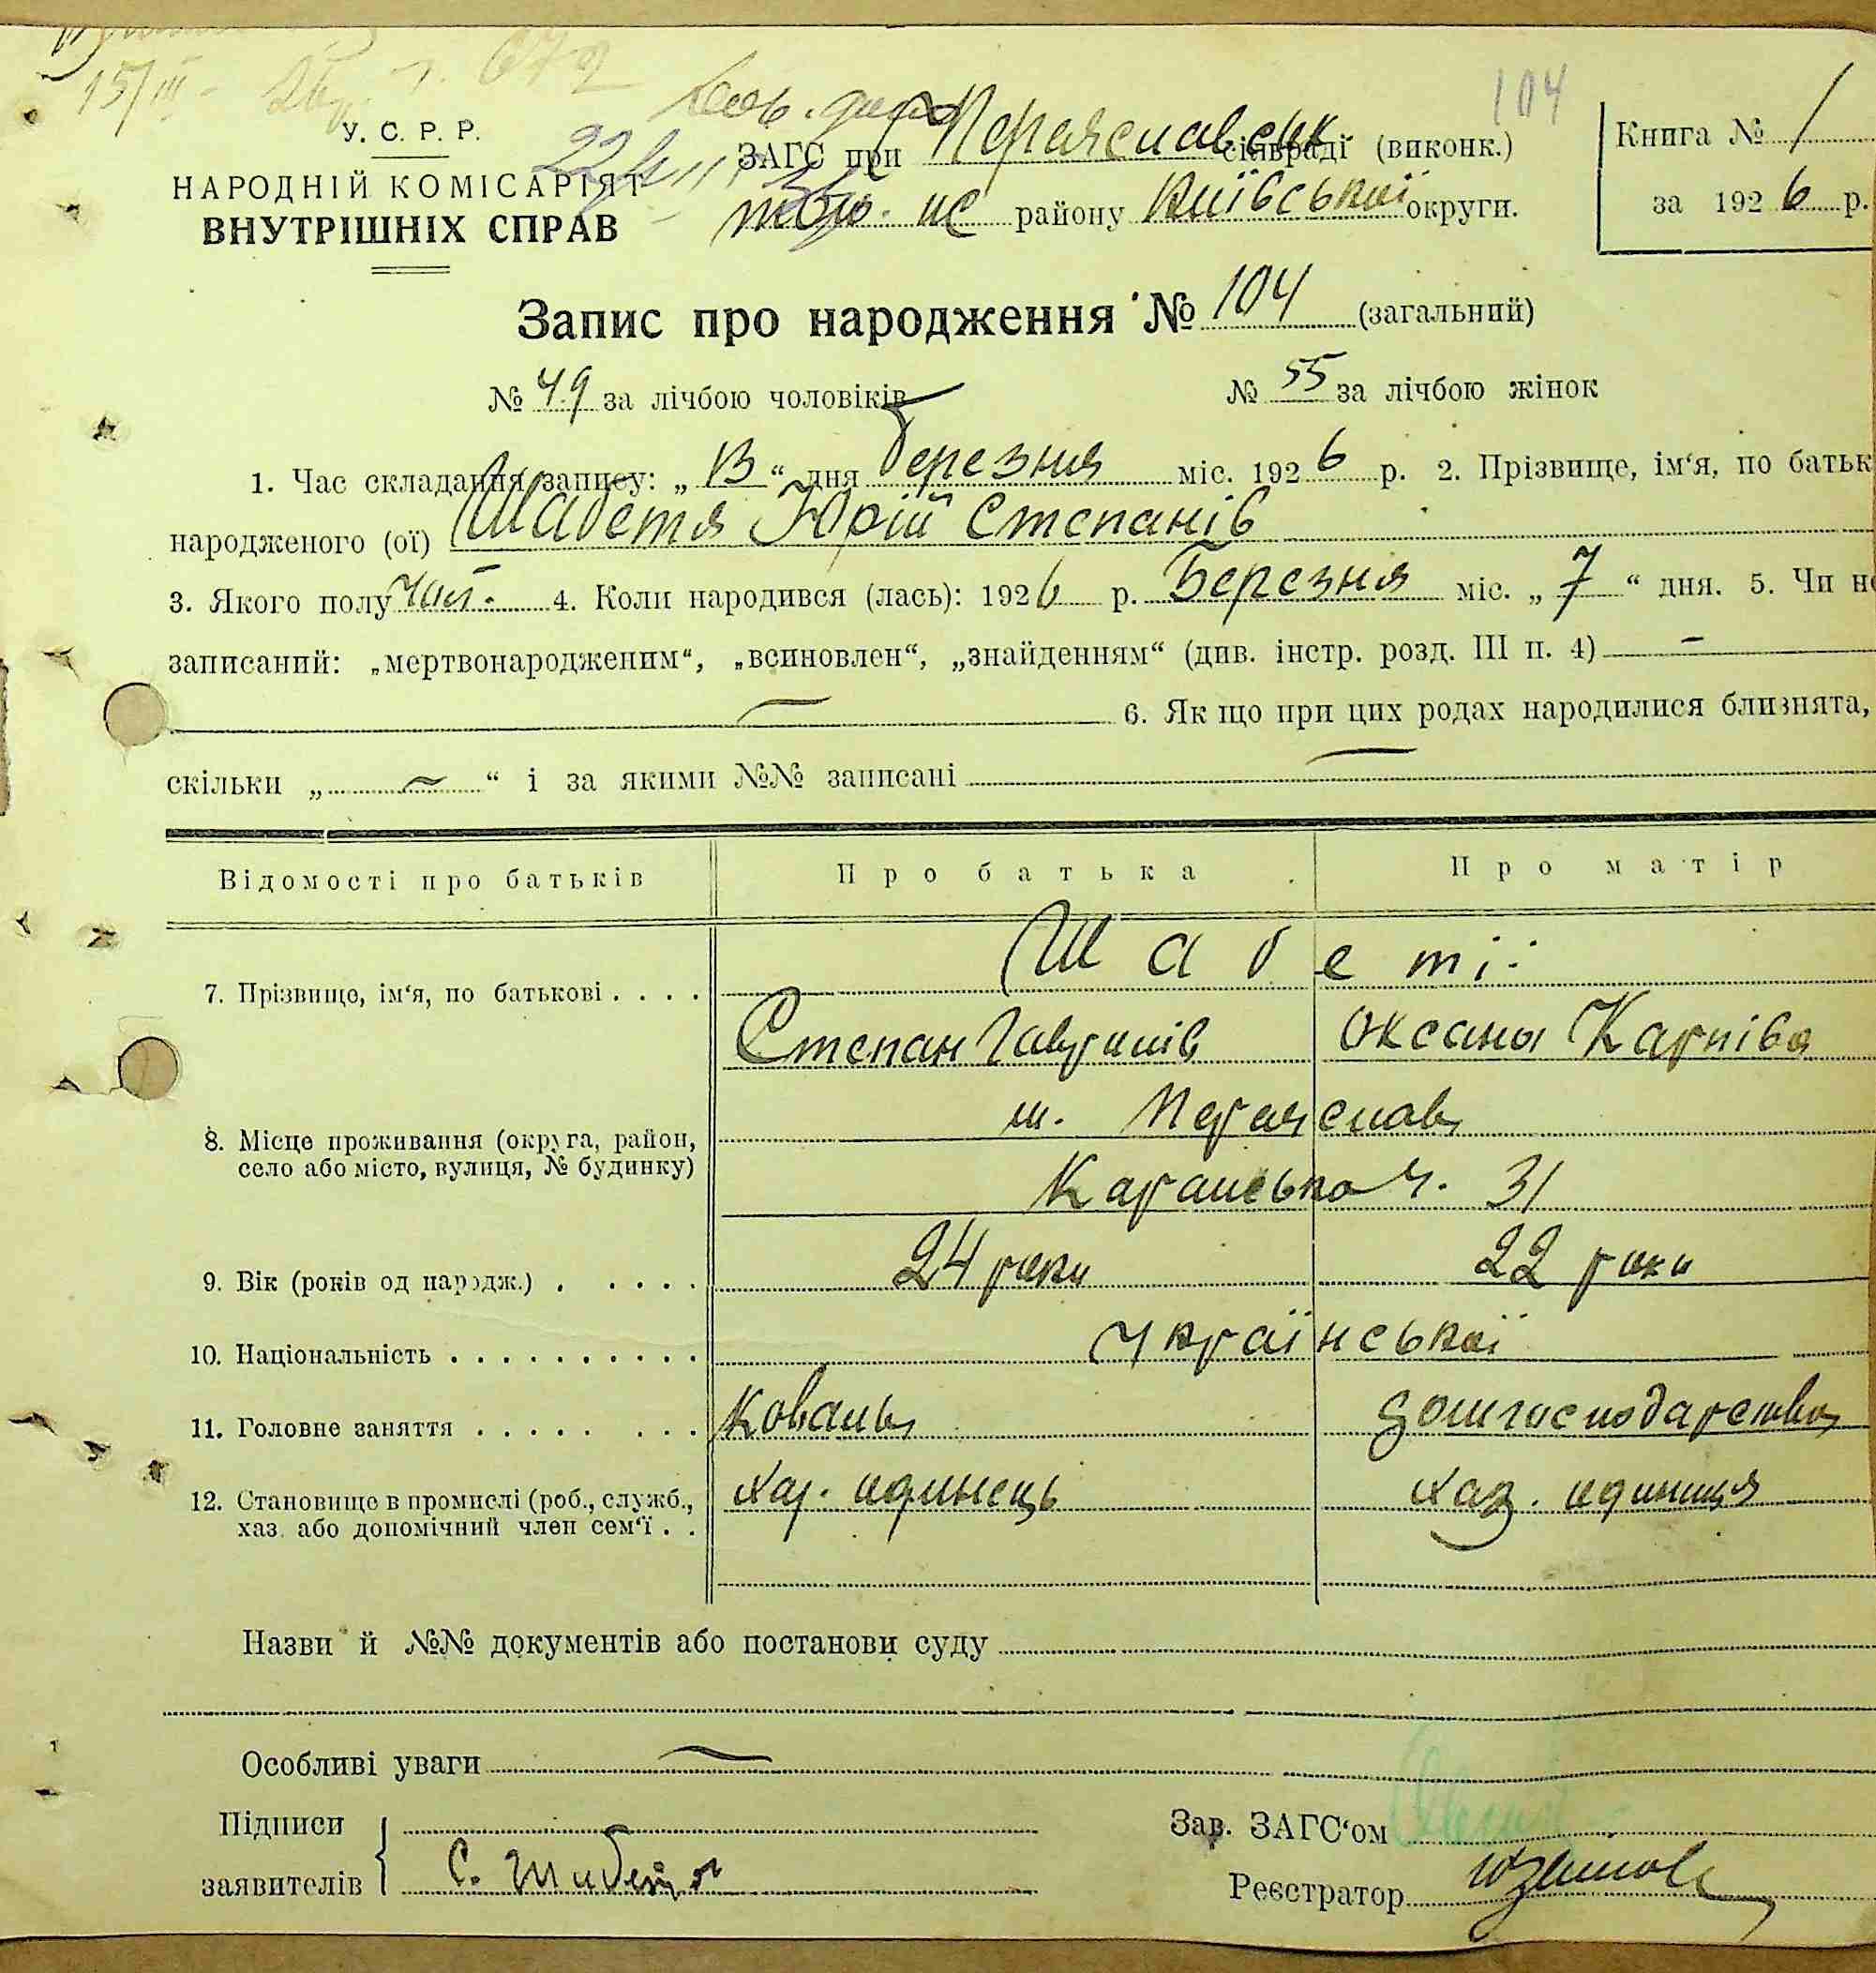 15/III-
104
У. С. Р. Р.
НАРОДНІЙ КОМІСАРІЯТ
ВНУТРІШНІХ СПРАВ
ЗАГС при Переяславськ сільраді (виконк.)
району Київської округи.
Книга № 1
за 1926 р.
Запис про народження № 104 (загальний)
№ 49 за лічбою чоловіків № 55 за лічбою жінок
1. Час складання запису: „13“ дня березня міс. 1926 р. 2. Прізвище, ім‘я, по батьк
народженого (ої) Шабетя Юрій Степанів
3. Якого полу чол. 4. Коли народився (лась): 1926 р. Березня міс. „7“ дня. 5. Чи не
записаний: „мертвонародженим“, „всиновлен“, „знайденням“ (див. інстр. розд. III п. 4) —
— 6. Як що при цих родах народилися близнята,
скільки „ — “ і за якими №№ записані —
Відомості про батьків Про батька Про матір
7. Прізвище, ім‘я, по батькові . . . . Шабеті
Степан Гаврилів Оксана Карпівa
8. Місце проживання (округа, район,
село або місто, вулиця, № будинку)
м. Переяслав
Каранська ч. 31
9. Вік (років од народж.) . . . . . 24 роки 22 роки
10. Національність . . . . . . . . . . української
11. Головне заняття . . . . . . . . Коваль домгосподарство
12. Становище в промислі (роб., служб.,
хаз. або допомічний член сем‘ї . .
хаз. одинець хаз. одиниця
Назви й №№ документів або постанови суду
Особливі уваги —
Підписи
заявителів С. Шабетя
Зав. ЗАГС‘ом
Реєстратор